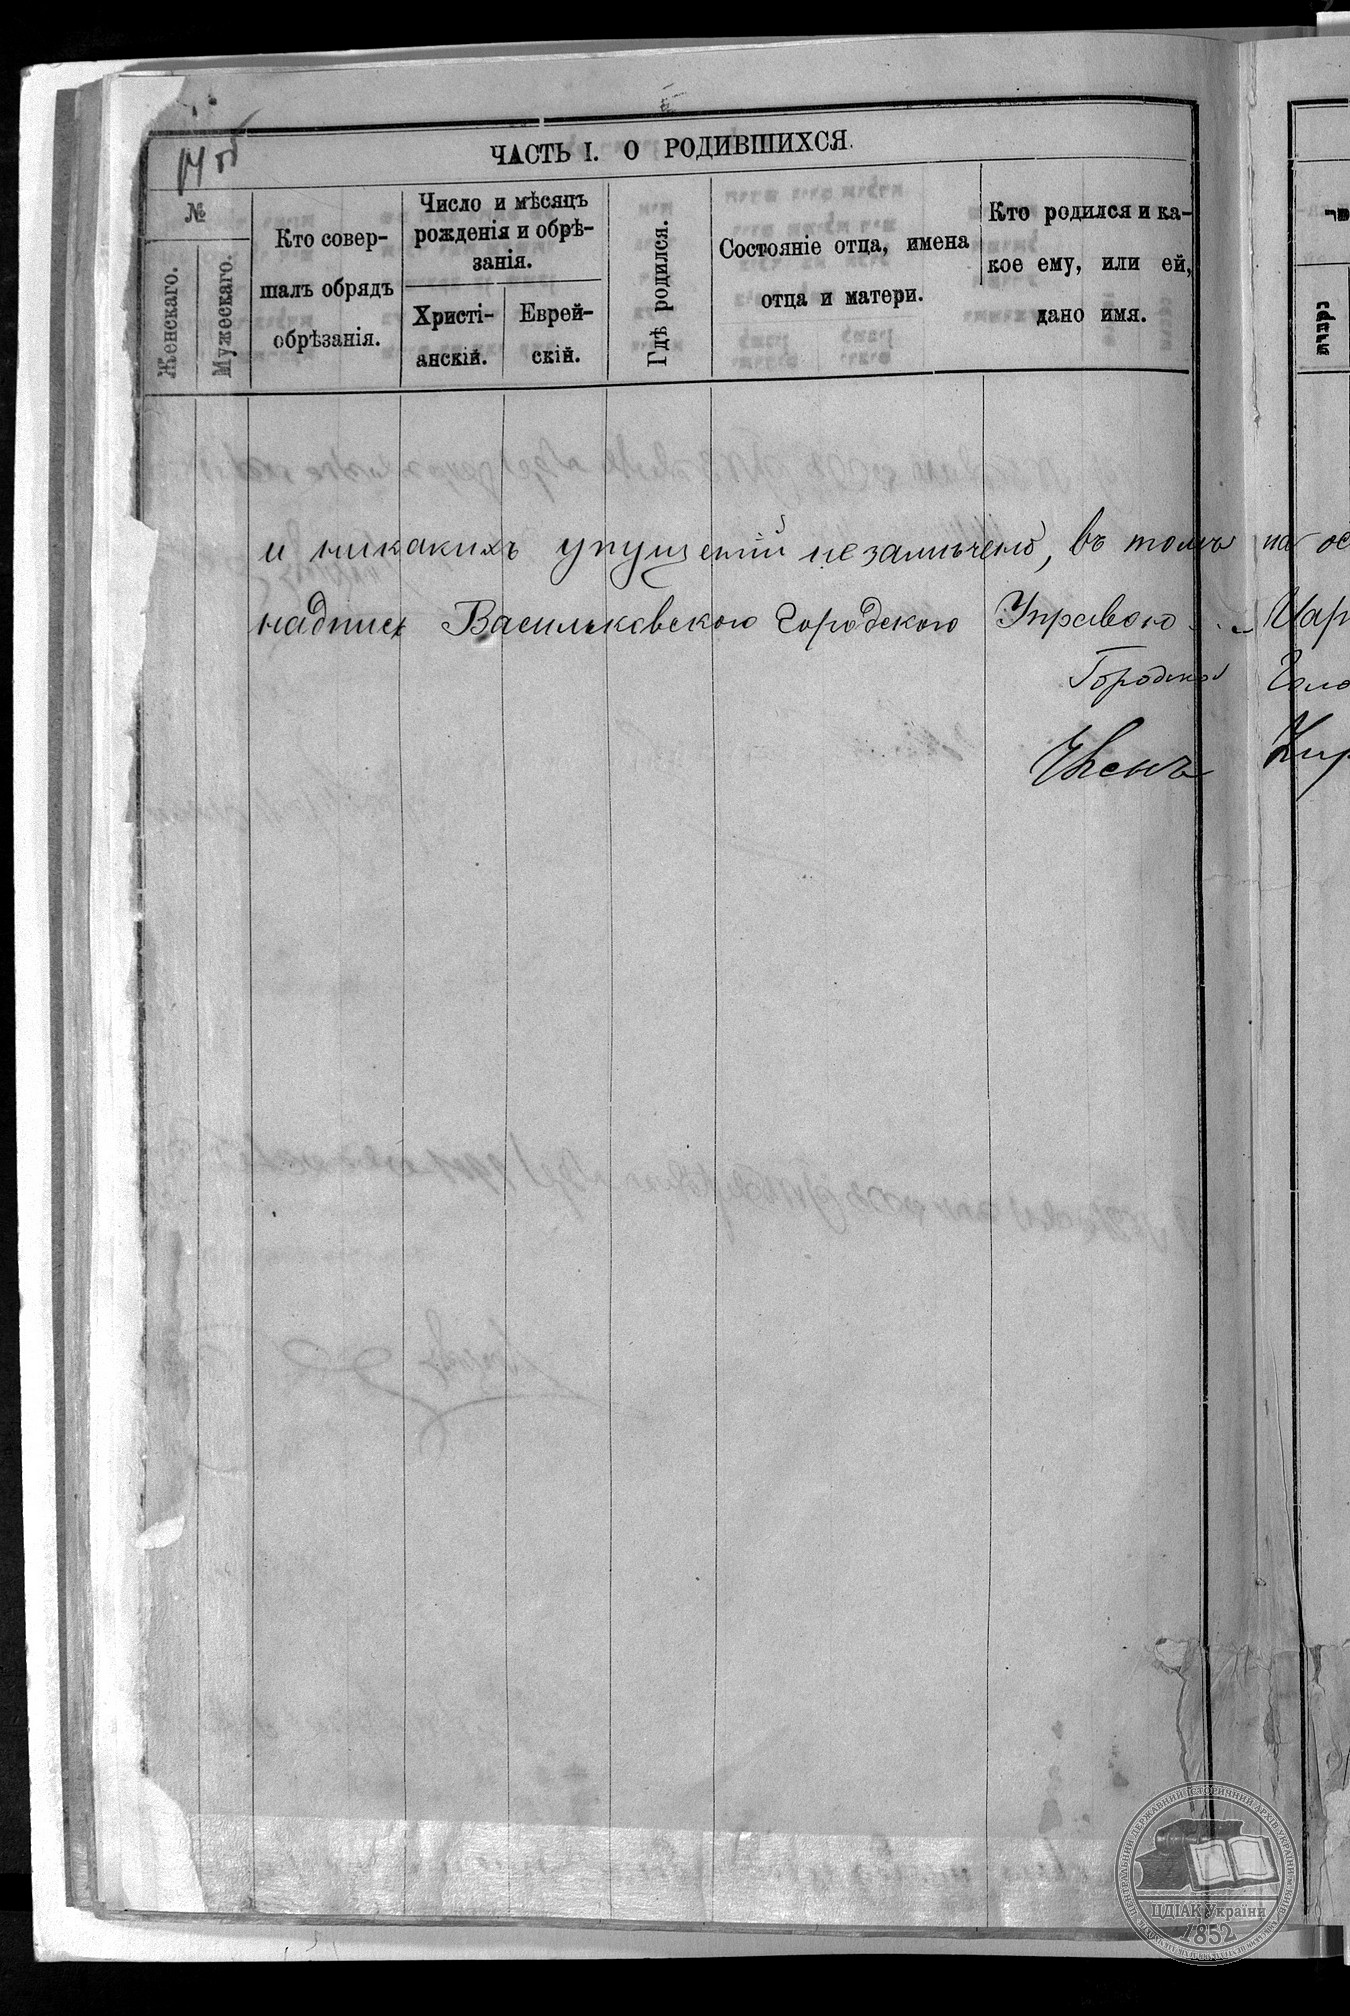 14 об
ЧАСТЬ I. О РОДИВШИХСЯ.
№
Женскаго.
Мужескаго.
Кто совер-
шалъ обрядъ
обрѣзанія.
Число и мѣсяцъ
рожденія и обрѣ-
занія.
Христі-
анскій.
Еврей-
скій.
Гдѣ родился.
Состояніе отца, имена
отца и матери.
Кто родился и ка-
кое ему, или ей,
дано имя.
и никакихъ упущеній незамѣчено, въ томъ на ос
надпись Васильковскою Городскою Управою
Городской Голо
Членъ
ЦДІАК України
1852